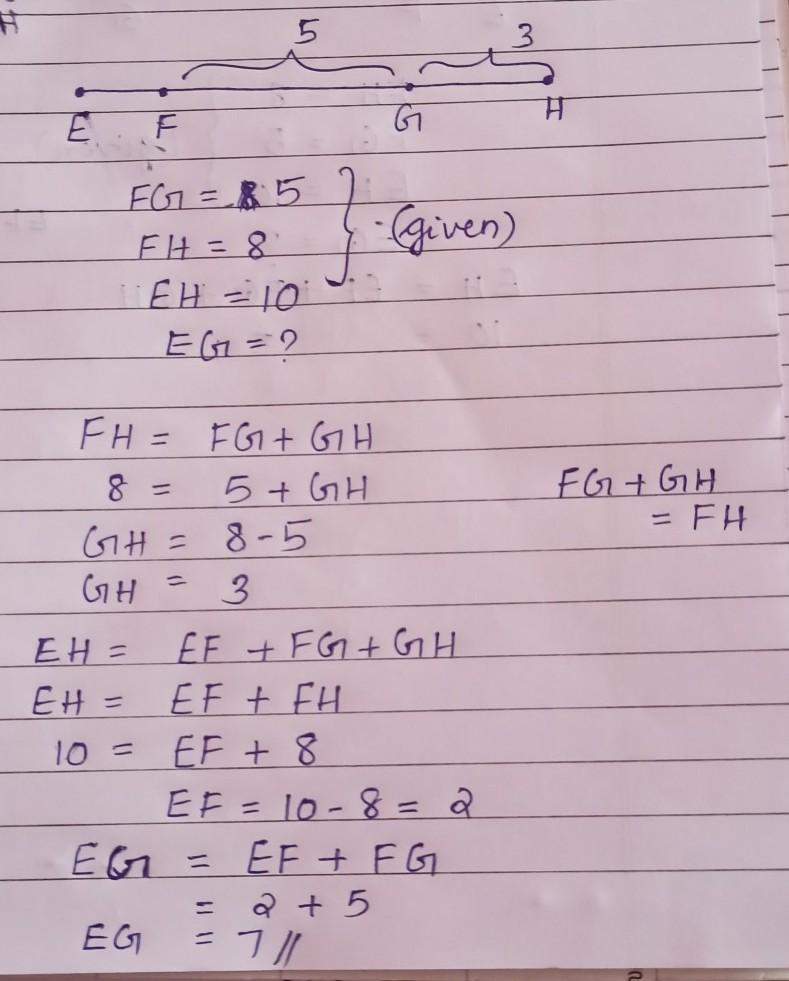 H
5 3
E F G H
FG = 5
FH = 8
EH = 10
(given)
EG = ?
FH = FG + GH
8 = 5 + GH
FG + GH
= FH
GH = 8 - 5
GH = 3
EH = EF + FG + GH
EH = EF + FH
10 = EF + 8
EF = 10 - 8 = 2
EG = EF + FG
= 2 + 5
EG = 7 //